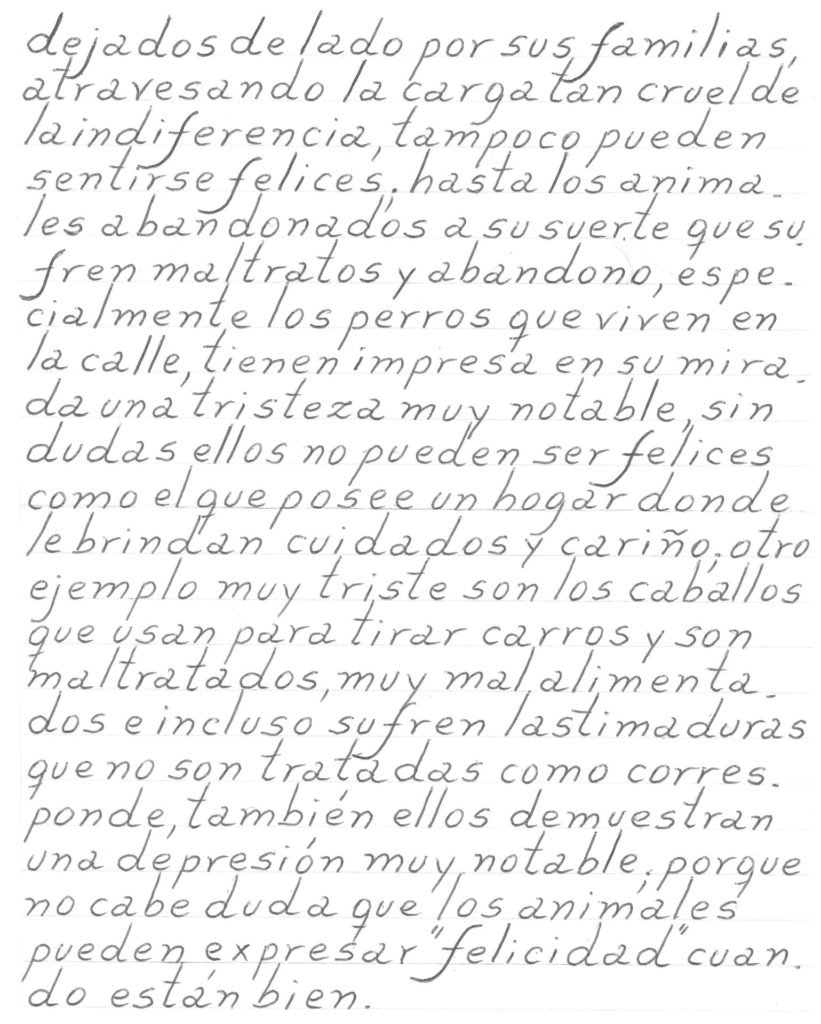 dejados de lado por sus familias,
atravesando la carga tan cruel de
la indiferencia, tampoco pueden
sentirse felices; hasta los anima-
les abandonados a su suerte que su-
fren maltratos y abandono, espe-
cialmente los perros que viven en
la calle, tienen impresa en su mira-
da una tristeza muy notable, sin
dudas ellos no pueden ser felices
como el que posee un hogar donde
le brindan cuidados y cariño; otro
ejemplo muy triste son los caballos
que usan para tirar carros y son
maltratados, muy mal alimenta-
dos e incluso sufren lastimaduras
que no son tratadas como corres-
ponde, también ellos demuestran
una depresión muy notable; porque
no cabe duda que los animales
pueden expresar "felicidad" cuan-
do están bien.